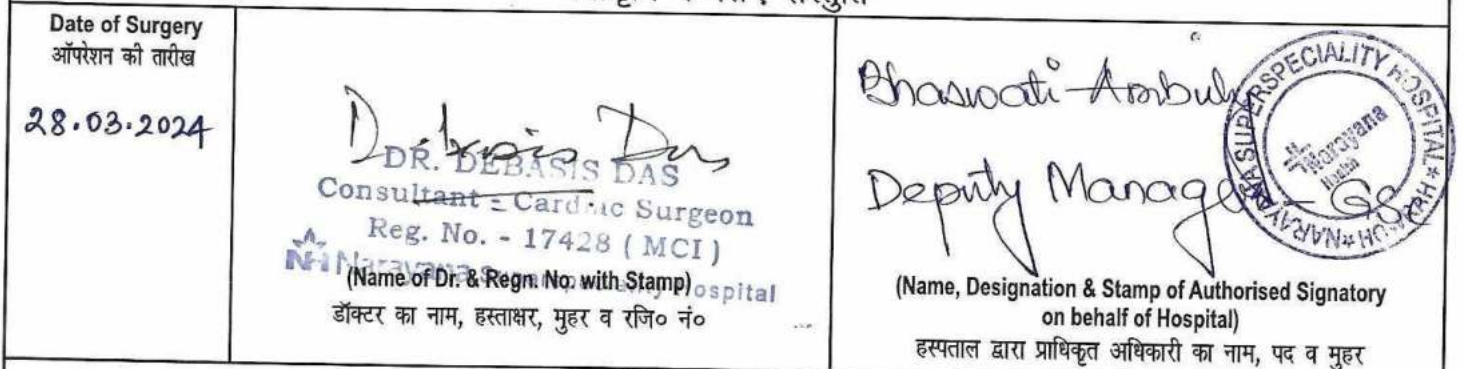 Date of Surgery
ऑपरेशन की तारीख
28.03.2024
Debasis Das
DR. DEBASIS DAS
Consultant - Cardiac Surgeon
Reg. No. - 17428 ( MCI )
NH Narayana Superspeciality Hospital
(Name of Dr. & Regn. No. with Stamp)
डॉक्टर का नाम, हस्ताक्षर, मुहर व रजि० नं०
Bhaswati Ambuly
Deputy Manager - GSC
NARAYANA SUPERSPECIALITY HOSPITAL * HOWRAH *
Narayana
Health
(Name, Designation & Stamp of Authorised Signatory
on behalf of Hospital)
हस्पताल द्वारा प्राधिकृत अधिकारी का नाम, पद व मुहर